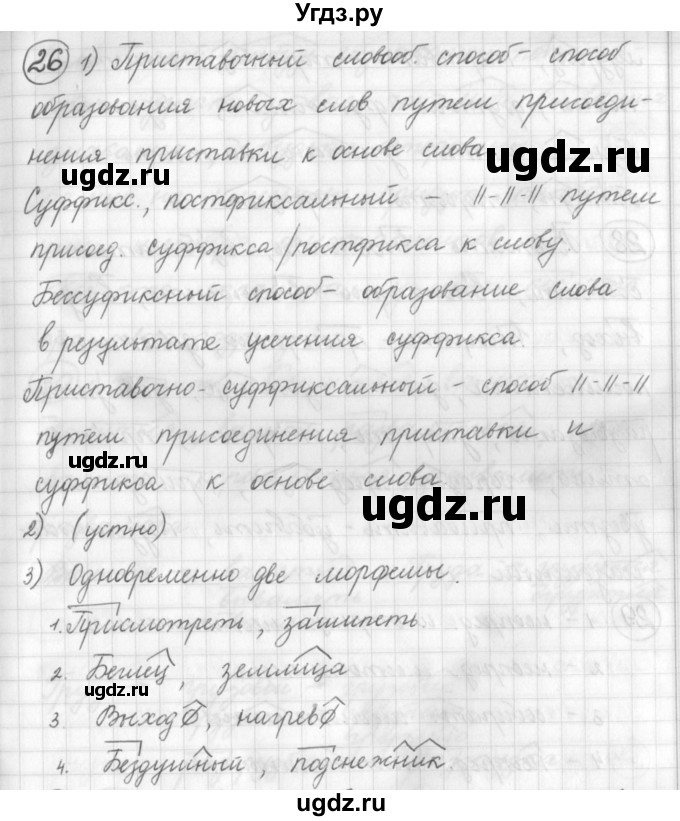 Угдз.ру
26 1) Приставочный словооб. способ - способ
образования новых слов путем присоеди-
нения приставки к основе слова
ugdz.ru
ugdz.ru
Суффикс., постфиксальный - 11-11-11 путем
присоед. суффикса/постфикса к слову
Бессуфиксный способ - образование слова
в результате усечения суффикса.
Приставочно-суффиксальный - способ 11-11-11
путем присоединения приставки и
ugdz.ru
суффикса к основе слова
ugdz.ru
2) (устно)
3) Одновременно две морфемы.
1. Присмотреть, зашипеть
2. Беглец, землица
ugdz.ru
3 Выход∅, нагрев∅
4. Бездушный, подснежник.
ugdz.ru
ugdz.ru